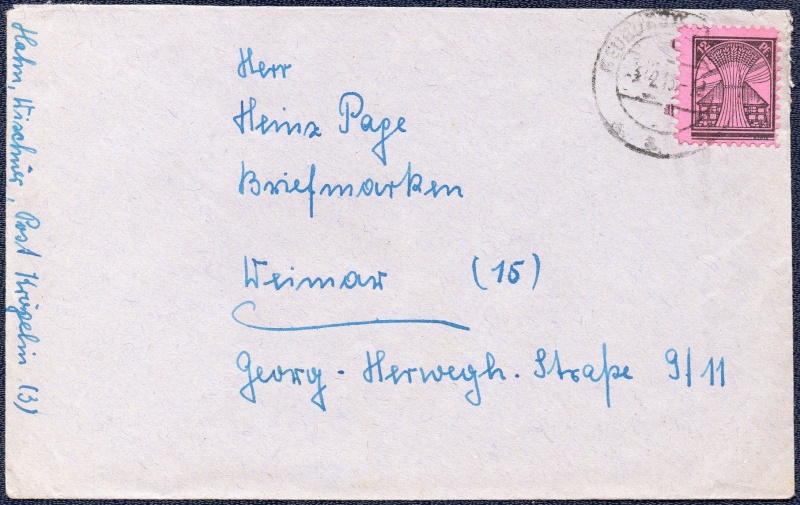 Herr
Heinz Page
Briefmarken
Weimar (15)
Georg-Herwegh-Straße 9/11
Hahn, Wischuer, Post Kröpelin (3)
12 Pf